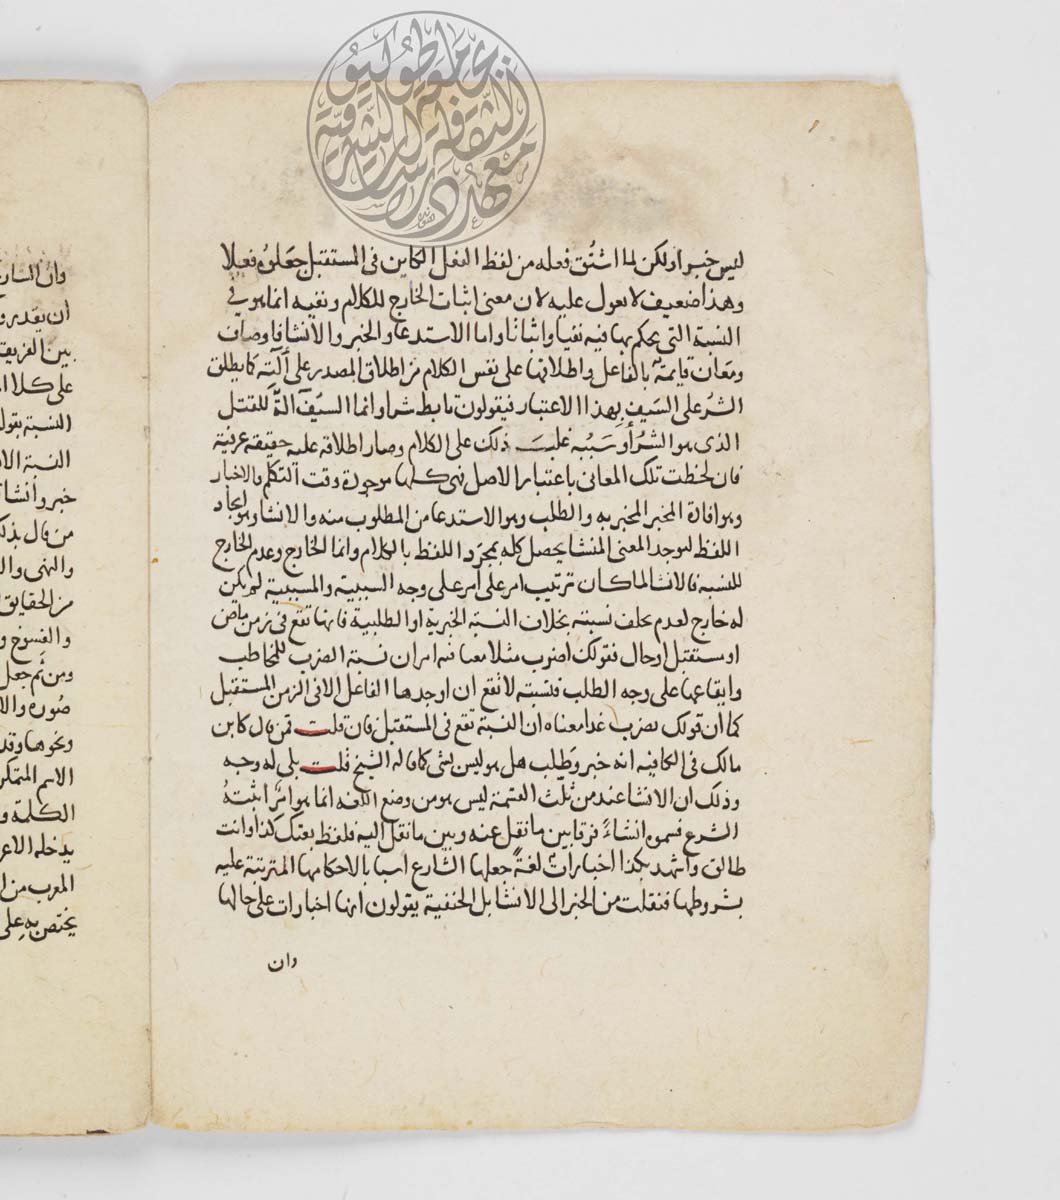 ليس خبرا ولكن لما اشتق فعله من لفظ الفعل الكاين في المستقبل جعلوه فعلا
وهذا ضعيف لا يعول عليه لان معنى اثبات الخارج للكلام ونفيه انما هو في
النسبة التي يحكم بها فيه نفيا واثباتا واما الاستدعا والخبر والانشا فاوصاف
ومعان قايمة بالفاعل واطلاقها على نفس الكلام من اطلاق المصدر على آلته كما يطلق
الشر على السيف بهذا الاعتبار فيقولون تابط شرا وانما السيف آلة للقتل
الذي هو الشر او سببه غلبت ذلك على الكلام وصار اطلاقه عليه حقيقة عرفية
فان لحظت تلك المعاني باعتبار الاصل فهي كلها موجودة وقت التكلم فالاخبار
وهو افادة المخبر المخبر به والطلب وهو الاستدعا من المطلوب منه والانشا وهو ايجاد
اللفظ لموجد المعنى المنشا يحصل كله بمجرد اللفظ بالكلام وانما الخارج وعدم الخارج
للنسبة فالانشا لما كان ترتيب امر على امر على وجه السببية والمسببية لم يكن
له خارج لعدم تخلف نسبته بخلاف النسبة الخبرية او الطلبية فانها تقع في زمن ماض
او مستقبل او حال فقولك اضرب مثلا معناه امران نسبة الضرب للمخاطب
وايقاعها على وجه الطلب فنسبته لا تقع ان اوجدها الفاعل الا في الزمن المستقبل
كما ان قولك نضرب غدا معناه ان النسبة تقع في المستقبل فان قلت فمن قال كابن
مالك في الكافيه انه خبر وطلب هل هو ليس بشي كما قاله الشيخ قلت بلى له وجه
وذلك ان الانشا عند من ثلث القسمة ليس هو من وضع اللغه انما هو امر اثبته
الشرع فسموه انشاء فرقا بين ما نقل عنه وبين ما نقل اليه فلفظ بعتك كذا وانت
طالق واشهد بكذا اخبارات لغة جعلها الشارع اسبابا لاحكامها المترتبة عليه
بشروطها فنقلت من الخبر الى الانشا بل الحنفية يقولون انها اخبارات على حالها
وان
وان السار
ان يقدر و
بين الفريق
على كلا ا
النسبة بقول
النسبة الا
خبر وانشا
من قال بذلك
والنهي وال
من الحقايق
والفسوخ و
ومن ثم جعل
صوره والا
ونحوها وقد
الاسم المتمكن
الكلمة و
يدخله الاعر
المعرب من ا
يختص به على
معهد دراسات الثقافة الشرقية
جامعة طوكيو